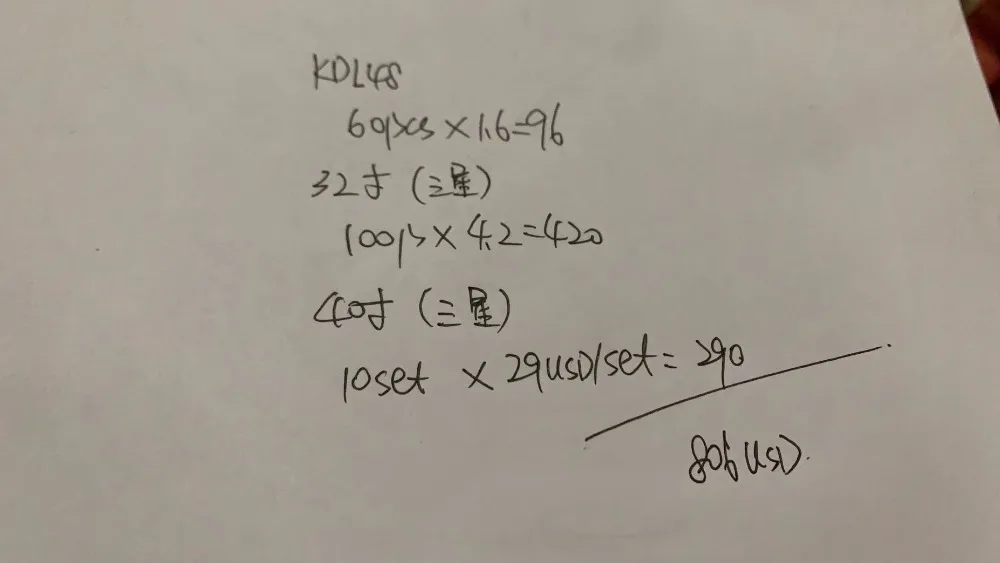 KDL48
60pcs × 1.6=96
32寸 (三星)
100p × 4.2=420
40寸 (三星)
10set × 29USD/set= 290
806 USD.